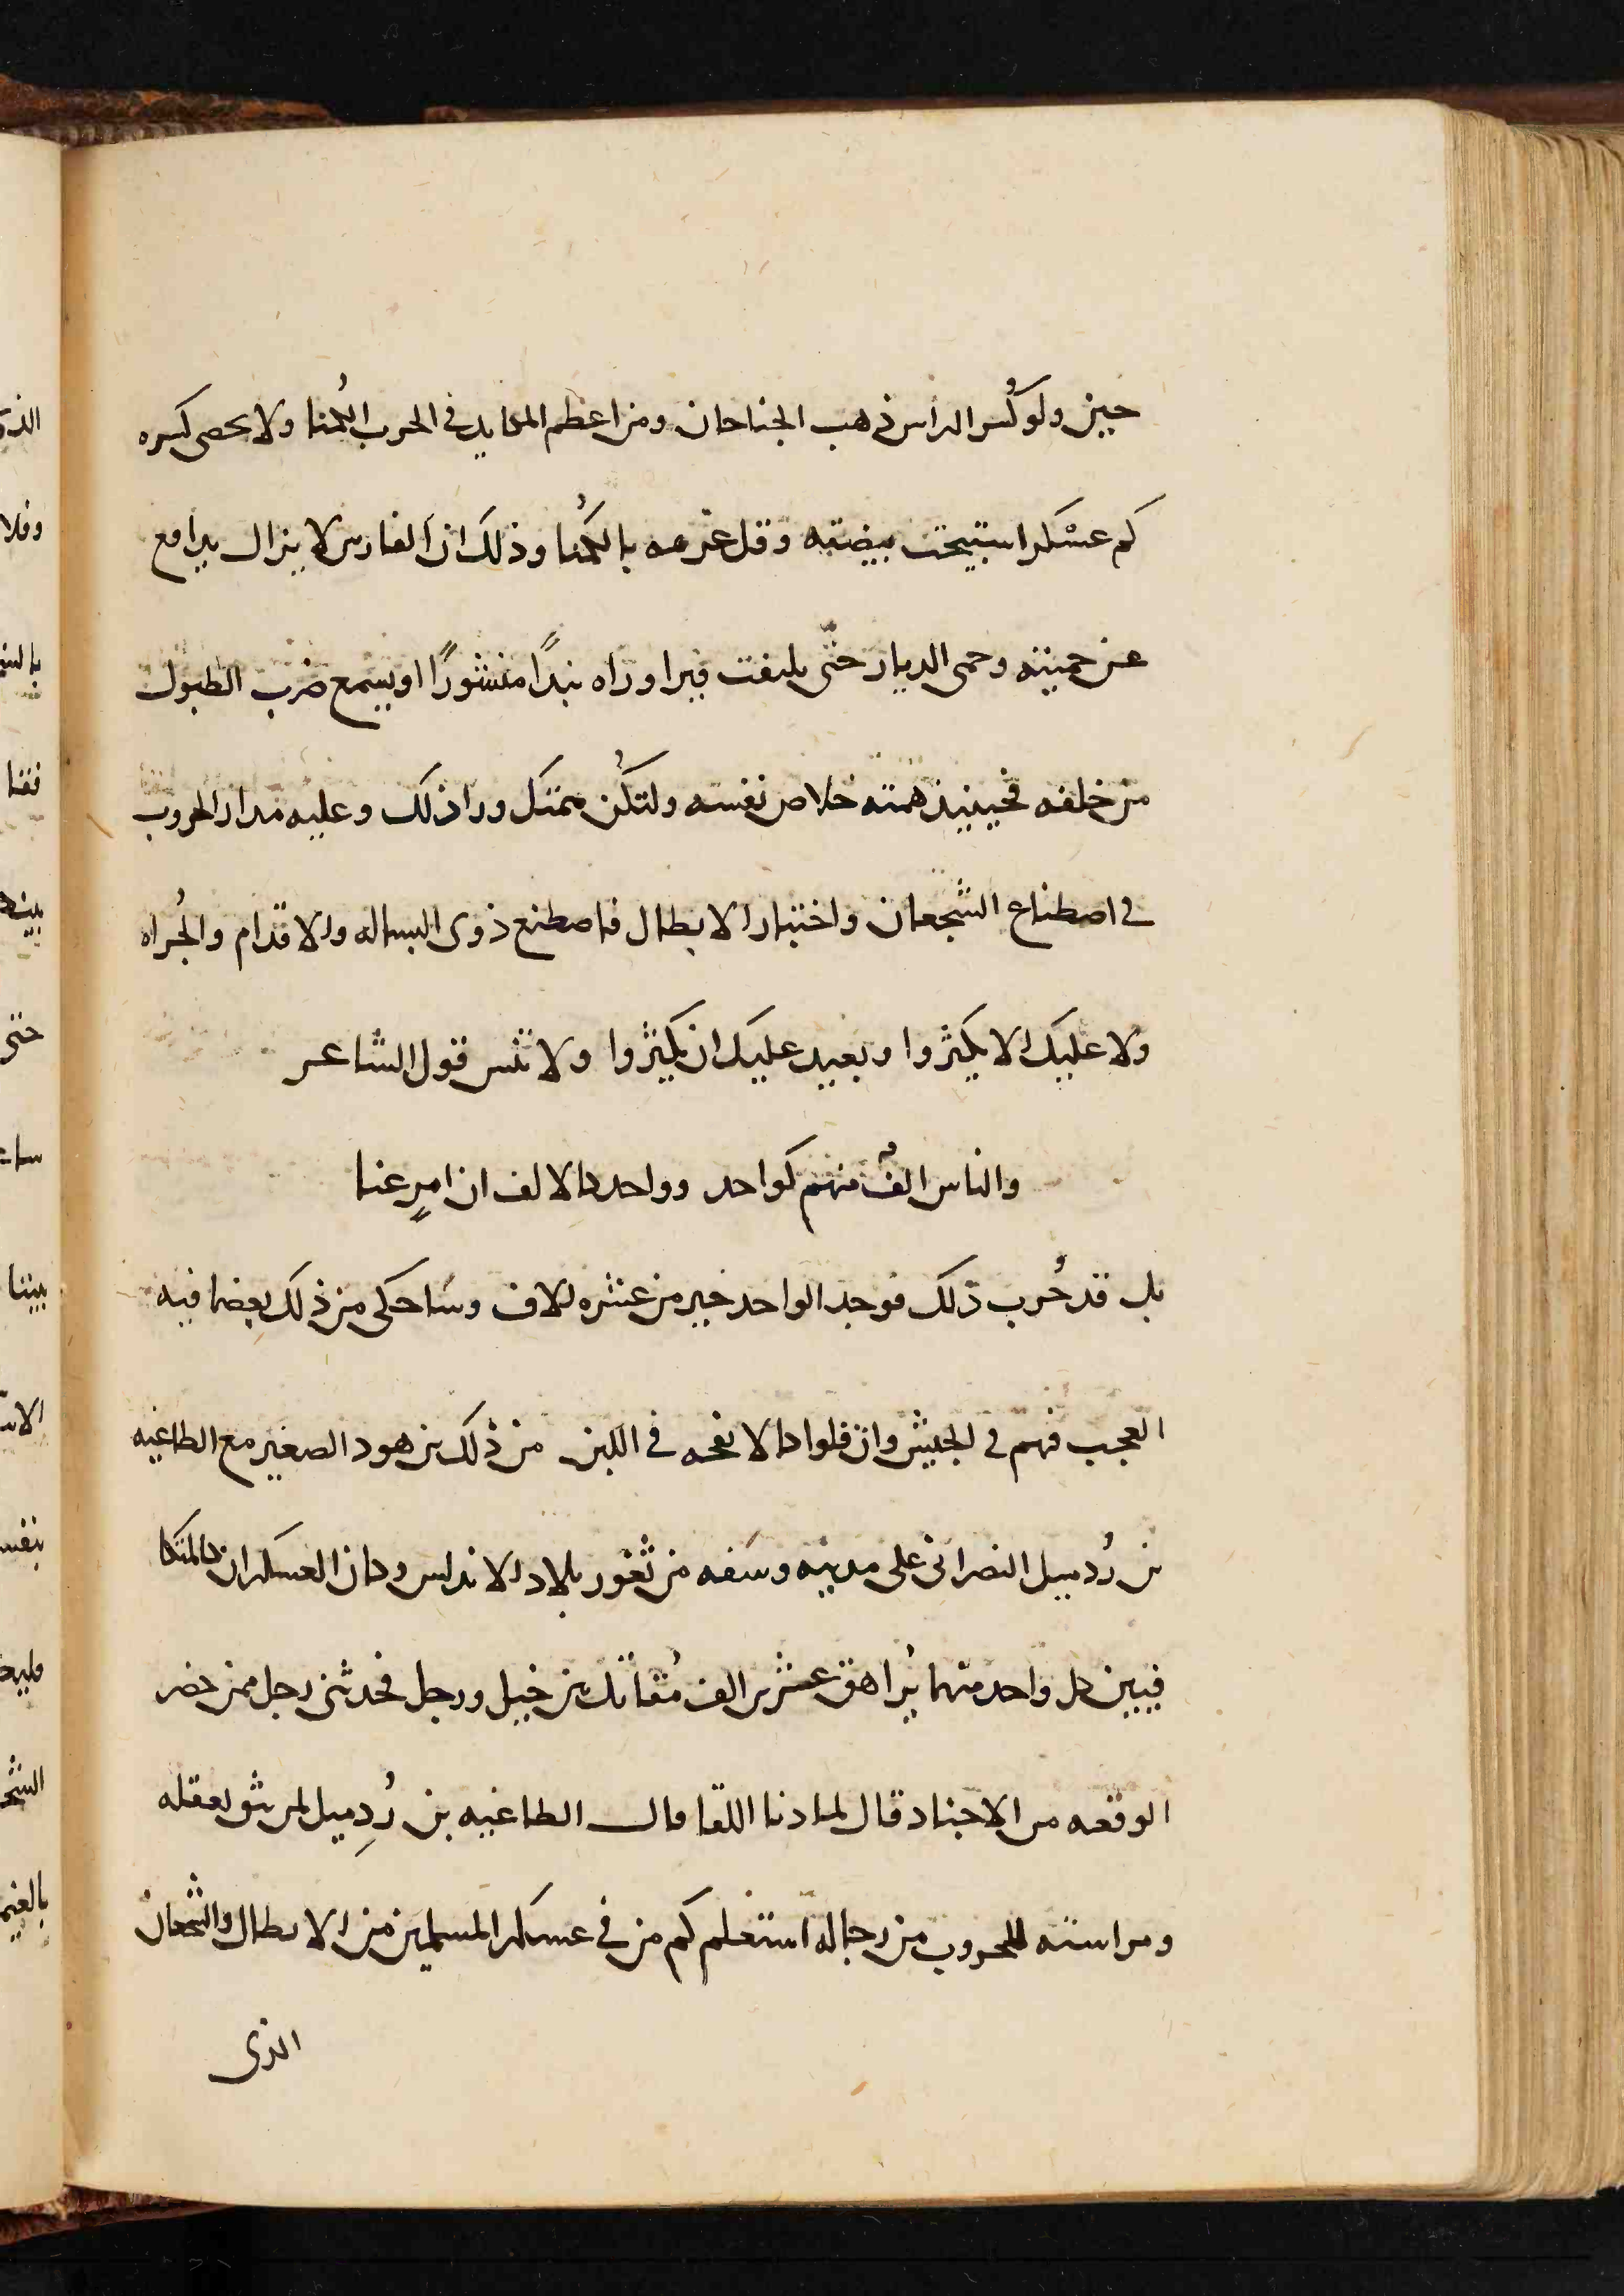 حين ولو كُسر الراس ذهب الجناحان ومن اعظم المكايد في الحرب الكُمنا ولا يحصى كسره
كم عسْكر استبيحت بيضته وقل عزمه بالكُمنا وذلك ان الفارس لا يزال يدافع
عن حميته وحمى الديار حتّى يلتفت فيرا وراه بندًا منشورًا او يسمع ضرب الطبول
من خلفه فحينيذ همته خلاص نفسه ولتكُن همتك ورا ذلك وعليه مدار الحروب
في اصطناع الشجعان واختيار الابطال فاصطنع ذوى البساله والاقدام والجُراه
ولا عليك الا يكثروا وبعيد عليك ان يكثروا ولا تنس قول الشاعر
والناس الفٌ منهم كواحد وواحد كالالف ان امرٍ عنا
بل قد جُرب ذلك فوجد الواحد خير من عشره الاف وساحكى من ذلك بعضا فيه
العجب فهم في الجيش وان قلوا كالانفحه في اللبن من ذلك بن هود الصغير مع الطاغيه
بن رُدميل النصرانى على مدينه وشقه من ثغور بلاد الاندلس وكان العسكران كالمتكا
فيين كل واحد منهما يُراهق عشرين الف مُقاتل بن خيل ورجل فحدثنى رجل ممن حضر
الوقعه من الاجناد قال لما دنا اللقا قال الطاغيه بن رُدِميل لمن يثق بعقله
ومراسته للحروب من رجاله استعلم كم من في عسكر المسلمين من الابطال والشجعان
الذى